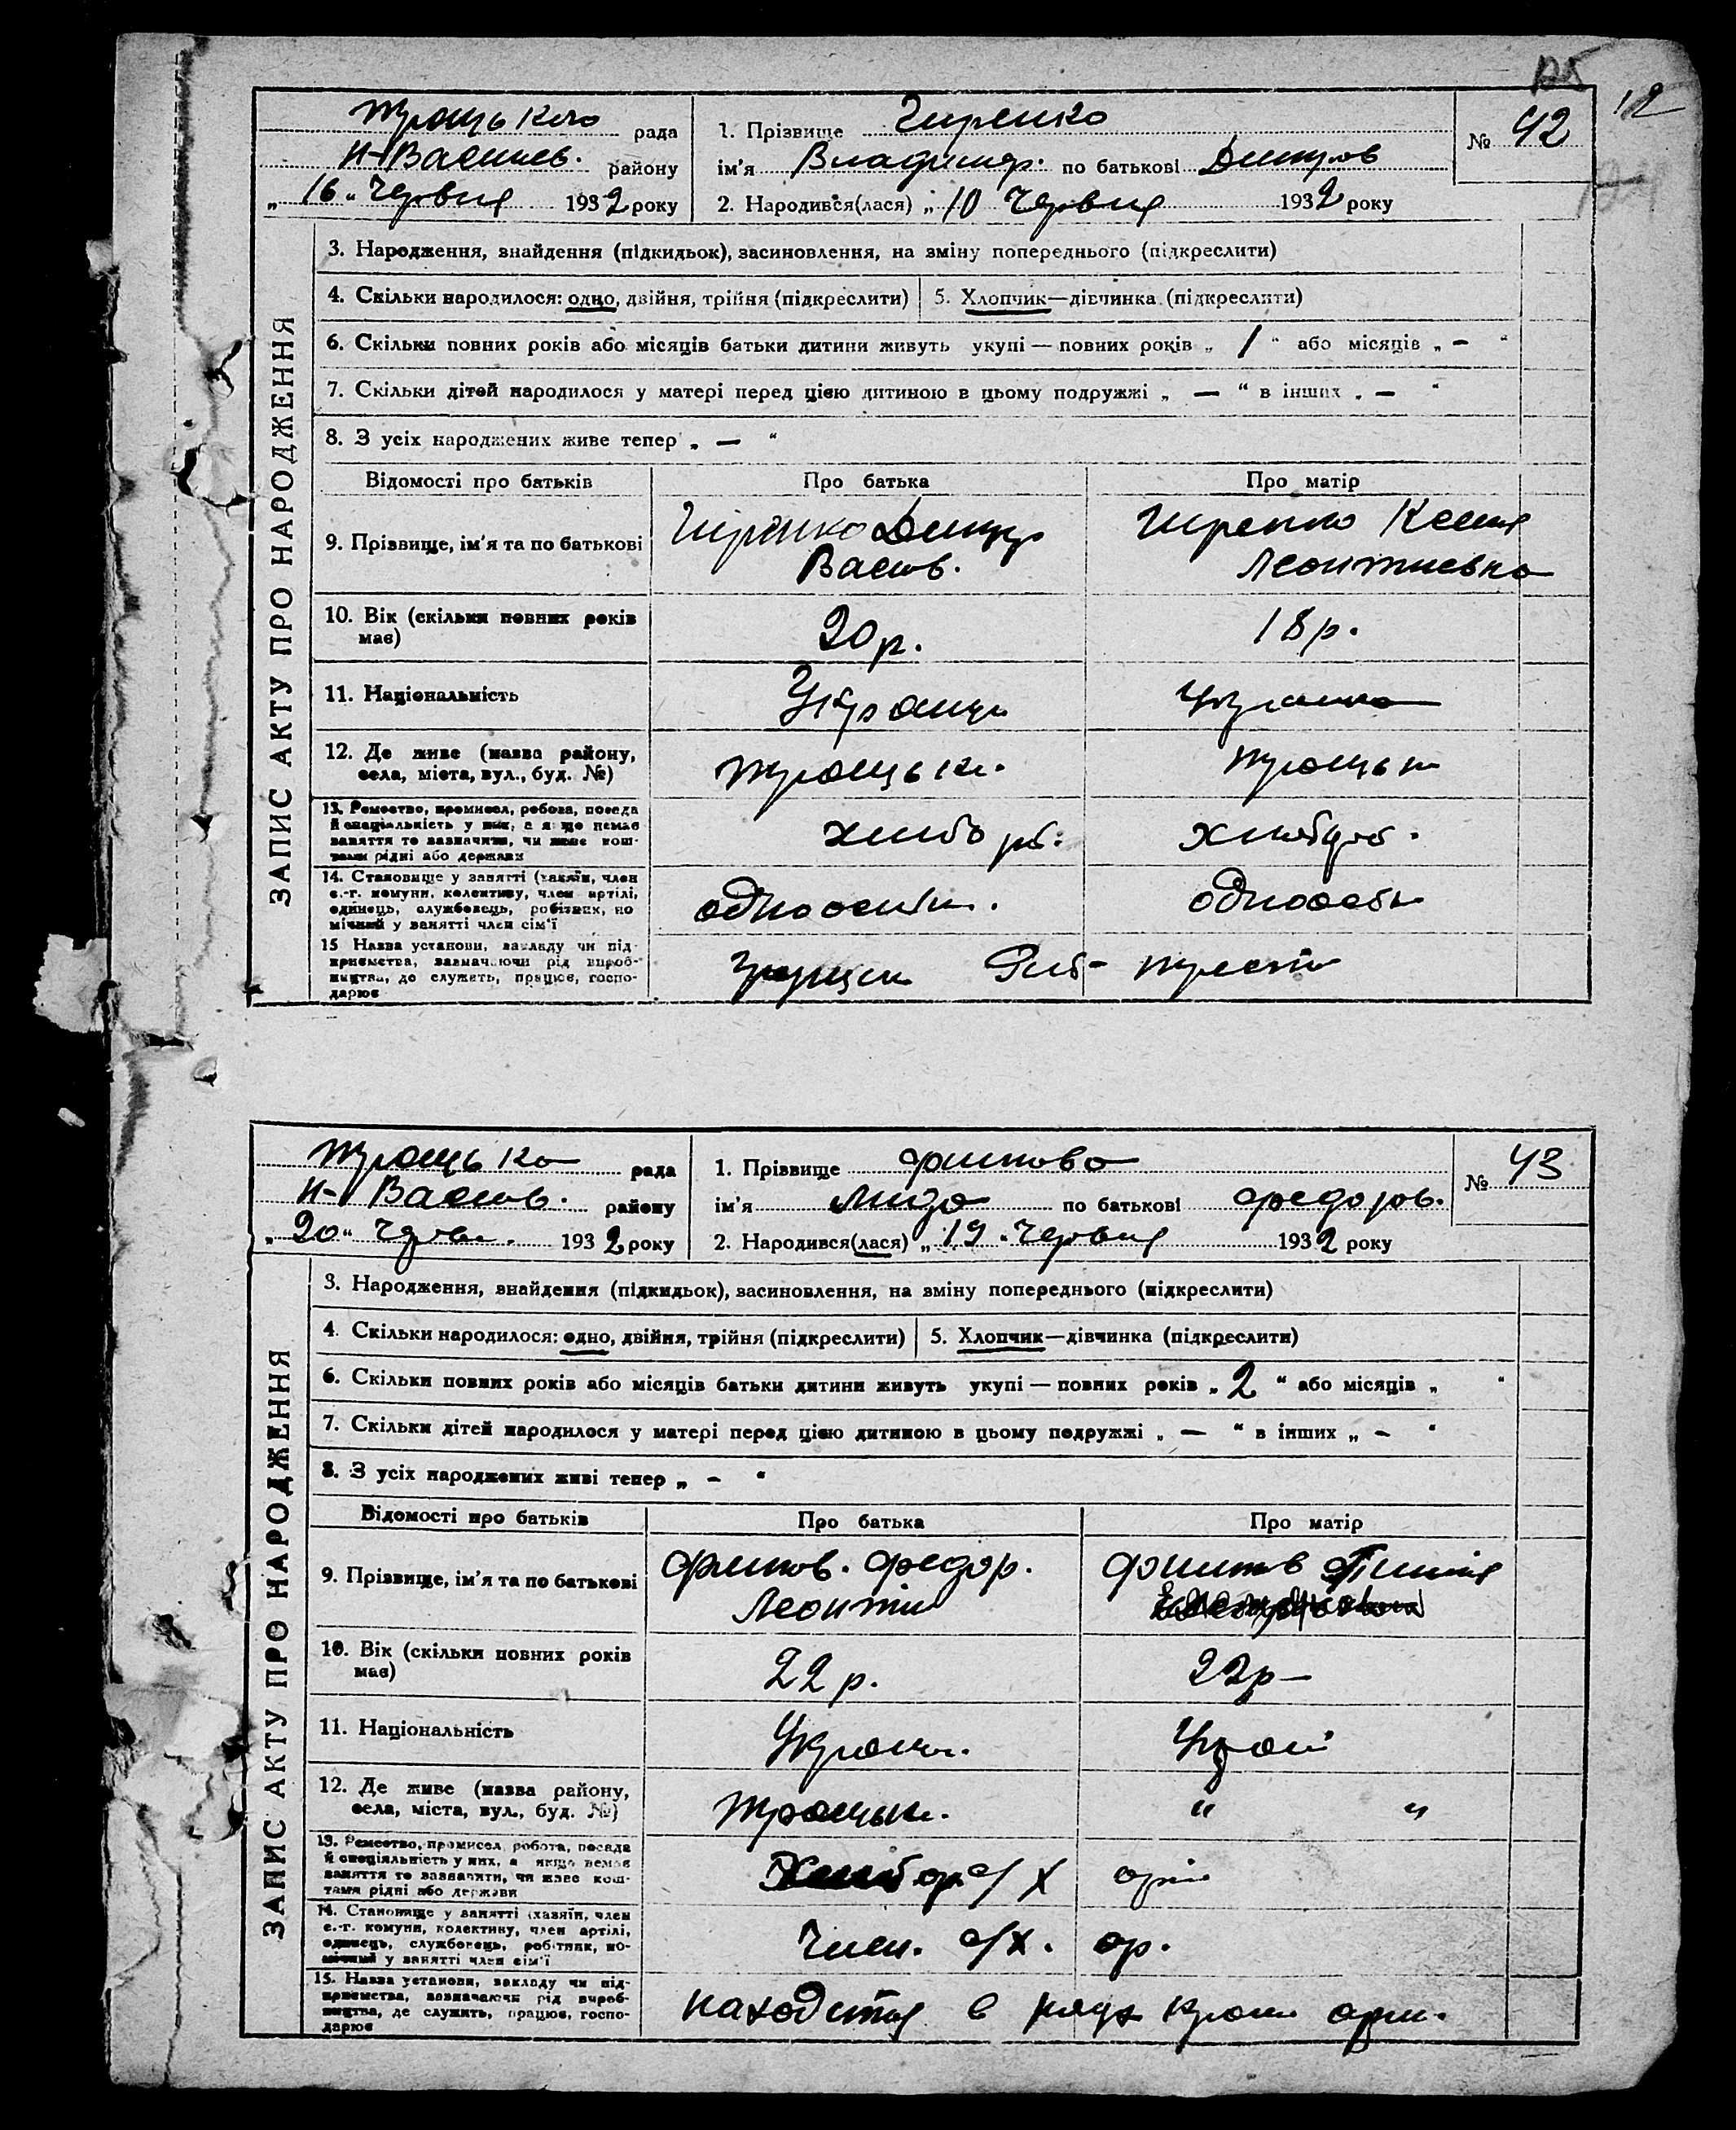 125
12
Троцького рада
Н-Василев. району
„16" Червня 1932 року
1. Прізвище Гиренко
ім'я Владимир. по батькові Дмитров
2. Народився(лася) „10 Червня 1932 року
№ 42
ЗАПИС АКТУ ПРО НАРОДЖЕННЯ
3. Народження, знайдення (підкидьок), засиновлення, на зміну попереднього (підкреслити)
4. Скільки народилося: одно, двійня, трійня (підкреслити)
5. Хлопчик—дівчинка (підкреслити)
6. Скільки повних років або місяців батьки дитини живуть укупі — повних років „ 1 " або місяців „ — "
7. Скільки дітей народилося у матері перед цією дитиною в цьому подружжі „ — " в інших „ — "
8. З усіх народжених живе тепер „ — "
Відомості про батьків Про батька Про матір
9. Прізвище, ім'я та по батькові
Гиренко Дмитр
Васив.
Гиренко Ксения
Леонтиевна
10. Вік (скільки повних років
має)
20 р.
18 р.
11. Національність
Українц
12. Де живе (назва району,
села, міста, вул., буд. №)
Троцьки.
Троцьки
13. Ремество, промисел, робота, посада
й спеціяльність у них, а якщо немає
заняття то зазначити, чи живе кош-
тами рідні або держави
хлибороб.
14. Становище у занятті (хазяїн, член
с.-г. комуни, колективу, член артілі,
одинець, службовець, робітник, по
мічний у занятті член сім'ї
одноосібн.
одноосібн
15 Назва установи, закладу чи під-
приємства, зазначаючи рід вироб-
ництва, де служить, працює, госпо-
дарює
Риб- трест
Троцько рада
Н- Васив. району
„20" Червн. 1932 року
1. Прізвище Филтова
ім'я Лида по батькові Федоров.
2. Народився(лася) „19 Червня 1932 року
№ 43
ЗАПИС АКТУ ПРО НАРОДЖЕННЯ
3. Народження, знайдення (підкидьок), засиновлення, на зміну попереднього (підкреслити)
4. Скільки народилося: одно, двійня, трійня (підкреслити)
5. Хлопчик—дівчинка (підкреслити)
6. Скільки повних років або місяців батьки дитини живуть укупі — повних років „ 2 " або місяців „ "
7. Скільки дітей народилося у матері перед цією дитиною в цьому подружжі „ — " в інших „ — "
8. З усіх народжених живі тепер „ — "
Відомості про батьків Про батька Про матір
9. Прізвище, ім'я та по батькові
Федор.
Леонтий
10. Вік (скільки повних років
має)
22 р.
22 р
11. Національність
Україн.
Украї
12. Де живе (назва району,
села, міста, вул., буд. №)
Троцьки.
" "
13. Ремество, промисел, робота, посада
й спеціяльність у них, а якщо немає
заняття то зазначити, чи живе кош-
тами рідні або держави
с/х
14. Становище у занятті (хазяїн, член
с.-г. комуни, колективу, член артілі,
одинець, службовець, робітник, по-
мічний у занятті член сім'ї
Член. с/х. ар.
15. Назва установи, закладу чи під-
приємства, зазначаючи рід вироб-
ництва, де служить, працює, госпо-
дарює
находится в рядх арм.